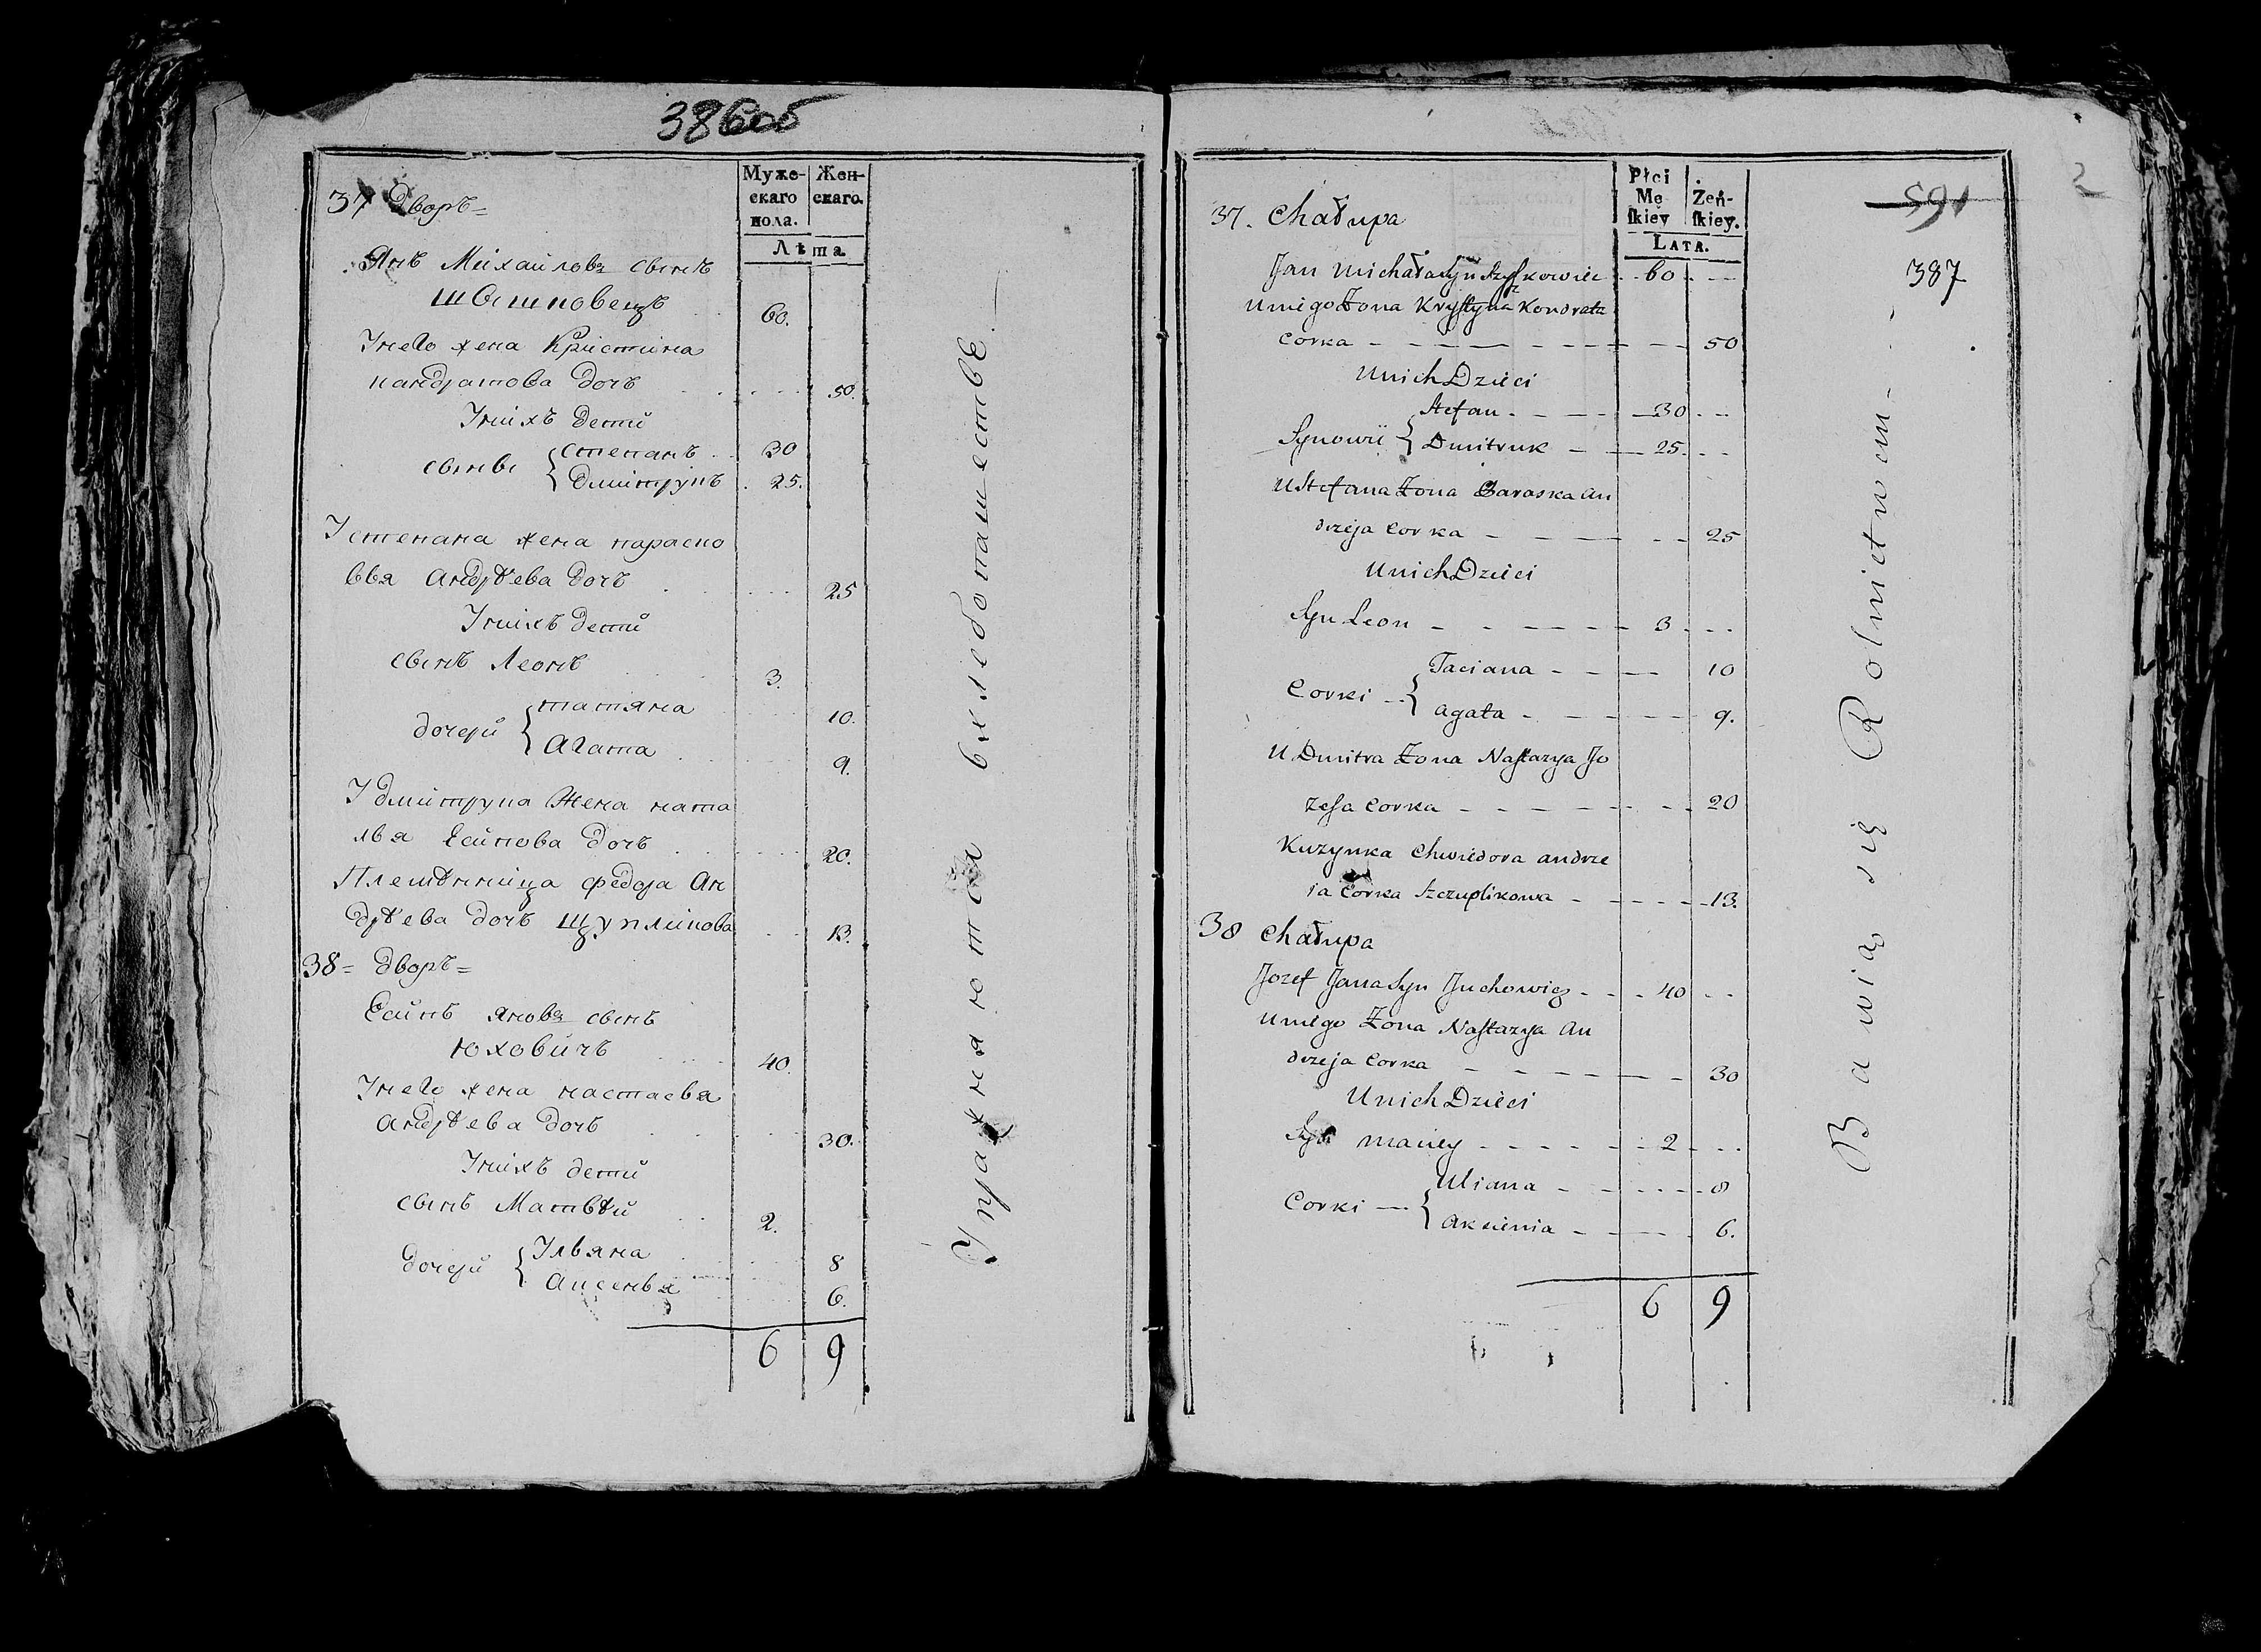 386 об
Муже- Жен-
скаго скаго.
пола.
Лѣта
37 Дворъ=
Янъ Михайловъ сынъ
60.
Унего жена Кристина
кандратова дочь 50.
Унихъ дети
сыны { степанъ 30
Дмитрукъ 25.
Устепана жена параско
вья Андрѣева дочь 25
Унихъ дети
сынъ Леонъ 3.
дочери { татяна 10.
Агата 9.
Удмитрука жена ната
лья Есипова дочь 20.
Племѣнница федора Ан
дрѣева дочь Щупликова 13.
38= дворъ=
Есипъ яновъ сынъ
юховичъ 40.
Унего жена настасья
Андрѣева дочь 30.
Унихъ дети
сынъ Матвѣй 2.
дочери { Ульяна 8
Аксенья 6.
6 9
Упражняются вхлебопашестве
Płci Żeń-
Mę ſkiey.
ſkiey
LATA.
165
387
37. Chałupa
Jan Michała Syn 60
Uniego Żona Krystyna Kondrata
Corka 50
Unich Dzieci
Synowie { Stefan 30
Dmitruk 25.
U Stefana Żona Paraska An
drzeja Corka 25
Unich Dzieci
Syn Leon 3
Corki { Taciana 10
Agata 9.
U Dmitra Żona Nastazya Jo
zefa Corka 20
Kuzynka Chwiedora Andrze
ja Corka Szczuplikowa 13.
38 Chałupa
Jozef Jana Syn Juchowicz 40
Uniego Żona Nastazya An
drzeja Corka 30
Unich Dzieci
Syn Maciey 2
Corki { Uliana 8
Aksienia 6.
6 9
Bawią się Rolnictwem